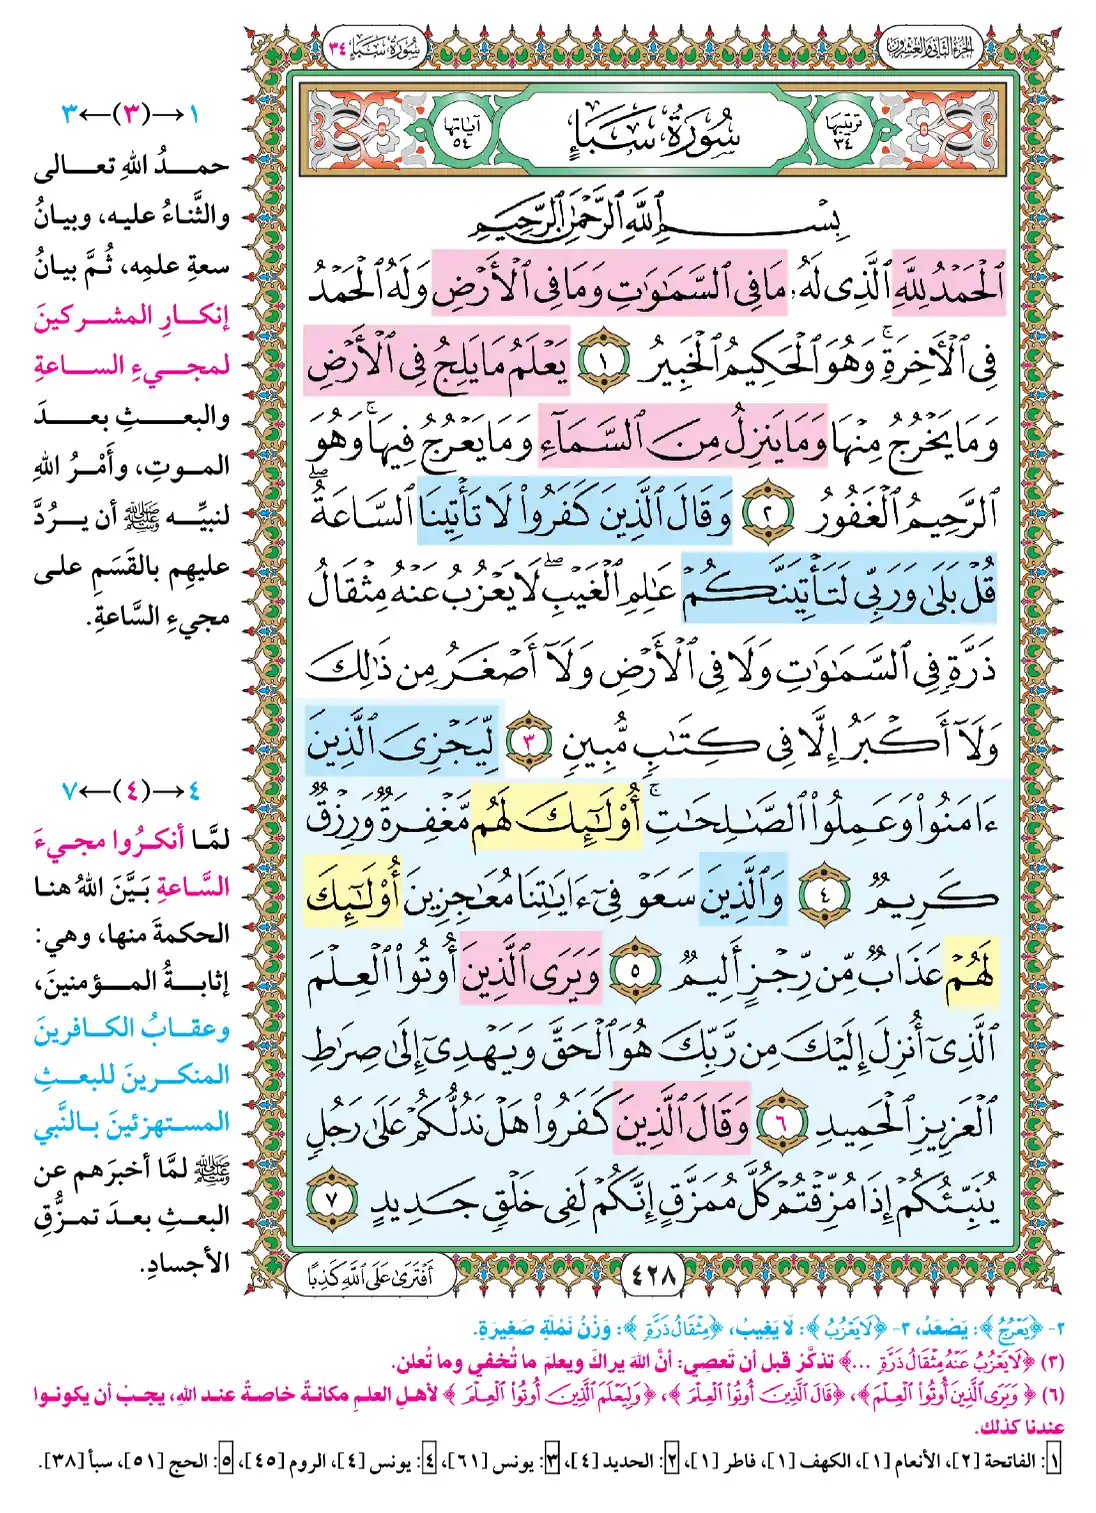 الجزء الثاني والعشرون
سُورَةُ سَبَإٍ ٣٤
ترتيبها ٣٤
سُورَةُ سَبَإٍ
آياتها ٥٤
بِسۡمِ ٱللَّهِ ٱلرَّحۡمَٰنِ ٱلرَّحِيمِ
ٱلۡحَمۡدُ لِلَّهِ ٱلَّذِي لَهُۥ مَا فِي ٱلسَّمَٰوَٰتِ وَمَا فِي ٱلۡأَرۡضِ وَلَهُ ٱلۡحَمۡدُ
فِي ٱلۡأٓخِرَةِۚ وَهُوَ ٱلۡحَكِيمُ ٱلۡخَبِيرُ ١ يَعۡلَمُ مَا يَلِجُ فِي ٱلۡأَرۡضِ
وَمَا يَخۡرُجُ مِنۡهَا وَمَا يَنزِلُ مِنَ ٱلسَّمَآءِ وَمَا يَعۡرُجُ فِيهَاۚ وَهُوَ
ٱلرَّحِيمُ ٱلۡغَفُورُ ٢ وَقَالَ ٱلَّذِينَ كَفَرُواْ لَا تَأۡتِينَا ٱلسَّاعَةُۖ
قُلۡ بَلَىٰ وَرَبِّي لَتَأۡتِيَنَّكُمۡ عَٰلِمِ ٱلۡغَيۡبِۖ لَا يَعۡزُبُ عَنۡهُ مِثۡقَالُ
ذَرَّةٖ فِي ٱلسَّمَٰوَٰتِ وَلَا فِي ٱلۡأَرۡضِ وَلَآ أَصۡغَرُ مِن ذَٰلِكَ
وَلَآ أَكۡبَرُ إِلَّا فِي كِتَٰبٖ مُّبِينٖ ٣ لِّيَجۡزِيَ ٱلَّذِينَ
ءَامَنُواْ وَعَمِلُواْ ٱلصَّٰلِحَٰتِۚ أُوْلَٰٓئِكَ لَهُم مَّغۡفِرَةٞ وَرِزۡقٞ
كَرِيمٞ ٤ وَٱلَّذِينَ سَعَوۡ فِيٓ ءَايَٰتِنَا مُعَٰجِزِينَ أُوْلَٰٓئِكَ
لَهُمۡ عَذَابٞ مِّن رِّجۡزٍ أَلِيمٞ ٥ وَيَرَى ٱلَّذِينَ أُوتُواْ ٱلۡعِلۡمَ
ٱلَّذِيٓ أُنزِلَ إِلَيۡكَ مِن رَّبِّكَ هُوَ ٱلۡحَقَّ وَيَهۡدِيٓ إِلَىٰ صِرَٰطِ
ٱلۡعَزِيزِ ٱلۡحَمِيدِ ٦ وَقَالَ ٱلَّذِينَ كَفَرُواْ هَلۡ نَدُلُّكُمۡ عَلَىٰ رَجُلٖ
يُنَبِّئُكُمۡ إِذَا مُزِّقۡتُمۡ كُلَّ مُمَزَّقٍ إِنَّكُمۡ لَفِي خَلۡقٖ جَدِيدٍ ٧
٤٢٨
أَفۡتَرَىٰ عَلَى ٱللَّهِ كَذِبًا
١→(٣)←٣
حمدُ اللهِ تعالى
والثَّناءُ عليه، وبيانُ
سعةِ علمِه، ثُمَّ بيانُ
إنكارِ المشركينَ
لمجيءِ الساعةِ
والبعثِ بعدَ
الموتِ، وأَمْرُ اللهِ
لنبيِّه ﷺ أن يردَّ
عليهِم بالقَسَمِ على
مجيءِ السَّاعةِ.
٤→(٤)←٧
لمَّا أنكرُوا مجيءَ
السَّاعةِ بَيَّنَ اللهُ هنا
الحكمةَ منها، وهي:
إثابةُ المؤمنينَ،
وعقابُ الكافرينَ
المنكرينَ للبعثِ
المستهزئينَ بالنَّبي
ﷺ لمَّا أخبرَهم عن
البعثِ بعدَ تمزُّقِ
الأجسادِ.
٢- ﴿يَعۡرُجُ﴾: يَصْعَدُ، ٣- ﴿لَا يَعۡزُبُ﴾: لَا يَغِيبُ، ﴿مِثۡقَالُ ذَرَّةٖ﴾: وَزْنُ نَمْلَةٍ صَغِيرَةٍ.
(٣) ﴿لَا يَعۡزُبُ عَنۡهُ مِثۡقَالُ ذَرَّةٖ ...﴾ تذكَّر قبل أن تَعصِي: أنَّ اللهَ يراكَ ويعلمَ ما تُخفي وما تُعلن.
(٦) ﴿وَيَرَى ٱلَّذِينَ أُوتُواْ ٱلۡعِلۡمَ﴾، ﴿قَالَ ٱلَّذِينَ أُوتُواْ ٱلۡعِلۡمَ﴾، ﴿وَلِيَعۡلَمَ ٱلَّذِينَ أُوتُواْ ٱلۡعِلۡمَ﴾ لأهلِ العلمِ مكانةٌ خاصةٌ عند اللهِ، يجبُ أن يكونوا
عندنا كذلك.
١: الفاتحة [٢]، الأنعام [١]، الكهف [١]، فاطر [١]، ٢: الحديد [٤]، ٣: يونس [٦١]، ٤: يونس [٤]، الروم [٤٥]، ٥: الحج [٥١]، سبأ [٣٨].